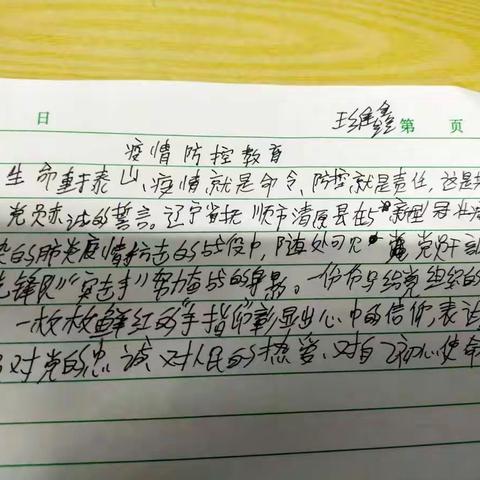 日 王维鑫 第 页
疫情防控教育
生命重于泰山、疫情就是命令、防控就是责任,这是
党员 的誓言。辽宁省抚顺市清原县在与新型冠状病
染的肺炎疫情抗击的战役中,随处可见 党员干部
先锋队"突击手"奋力奋战的身影。一份份 党组织的
一枚枚鲜红的"手指印"彰显出心中的信仰,表达
对党的忠诚、对人民的热爱、对自己初心使命